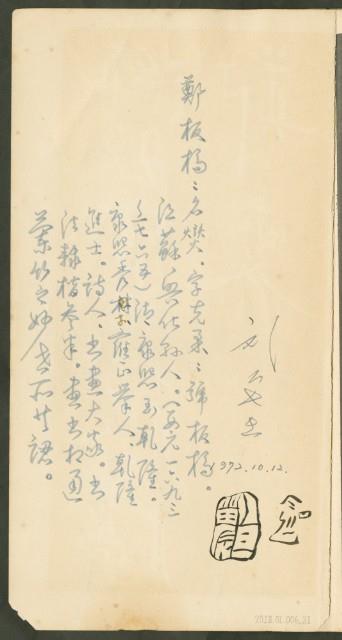 鄭板橋
名燮,字克柔,號板橋。
江蘇興化縣人。(公元一六九三
—一七六五)清,康熙至乾隆。
康熙秀才,雍正舉人,乾隆
進士。詩人,書畫大家。書
法隸楷參半。畫書相通
蘭竹之妙
1972.10.12.
2018.01.006.21